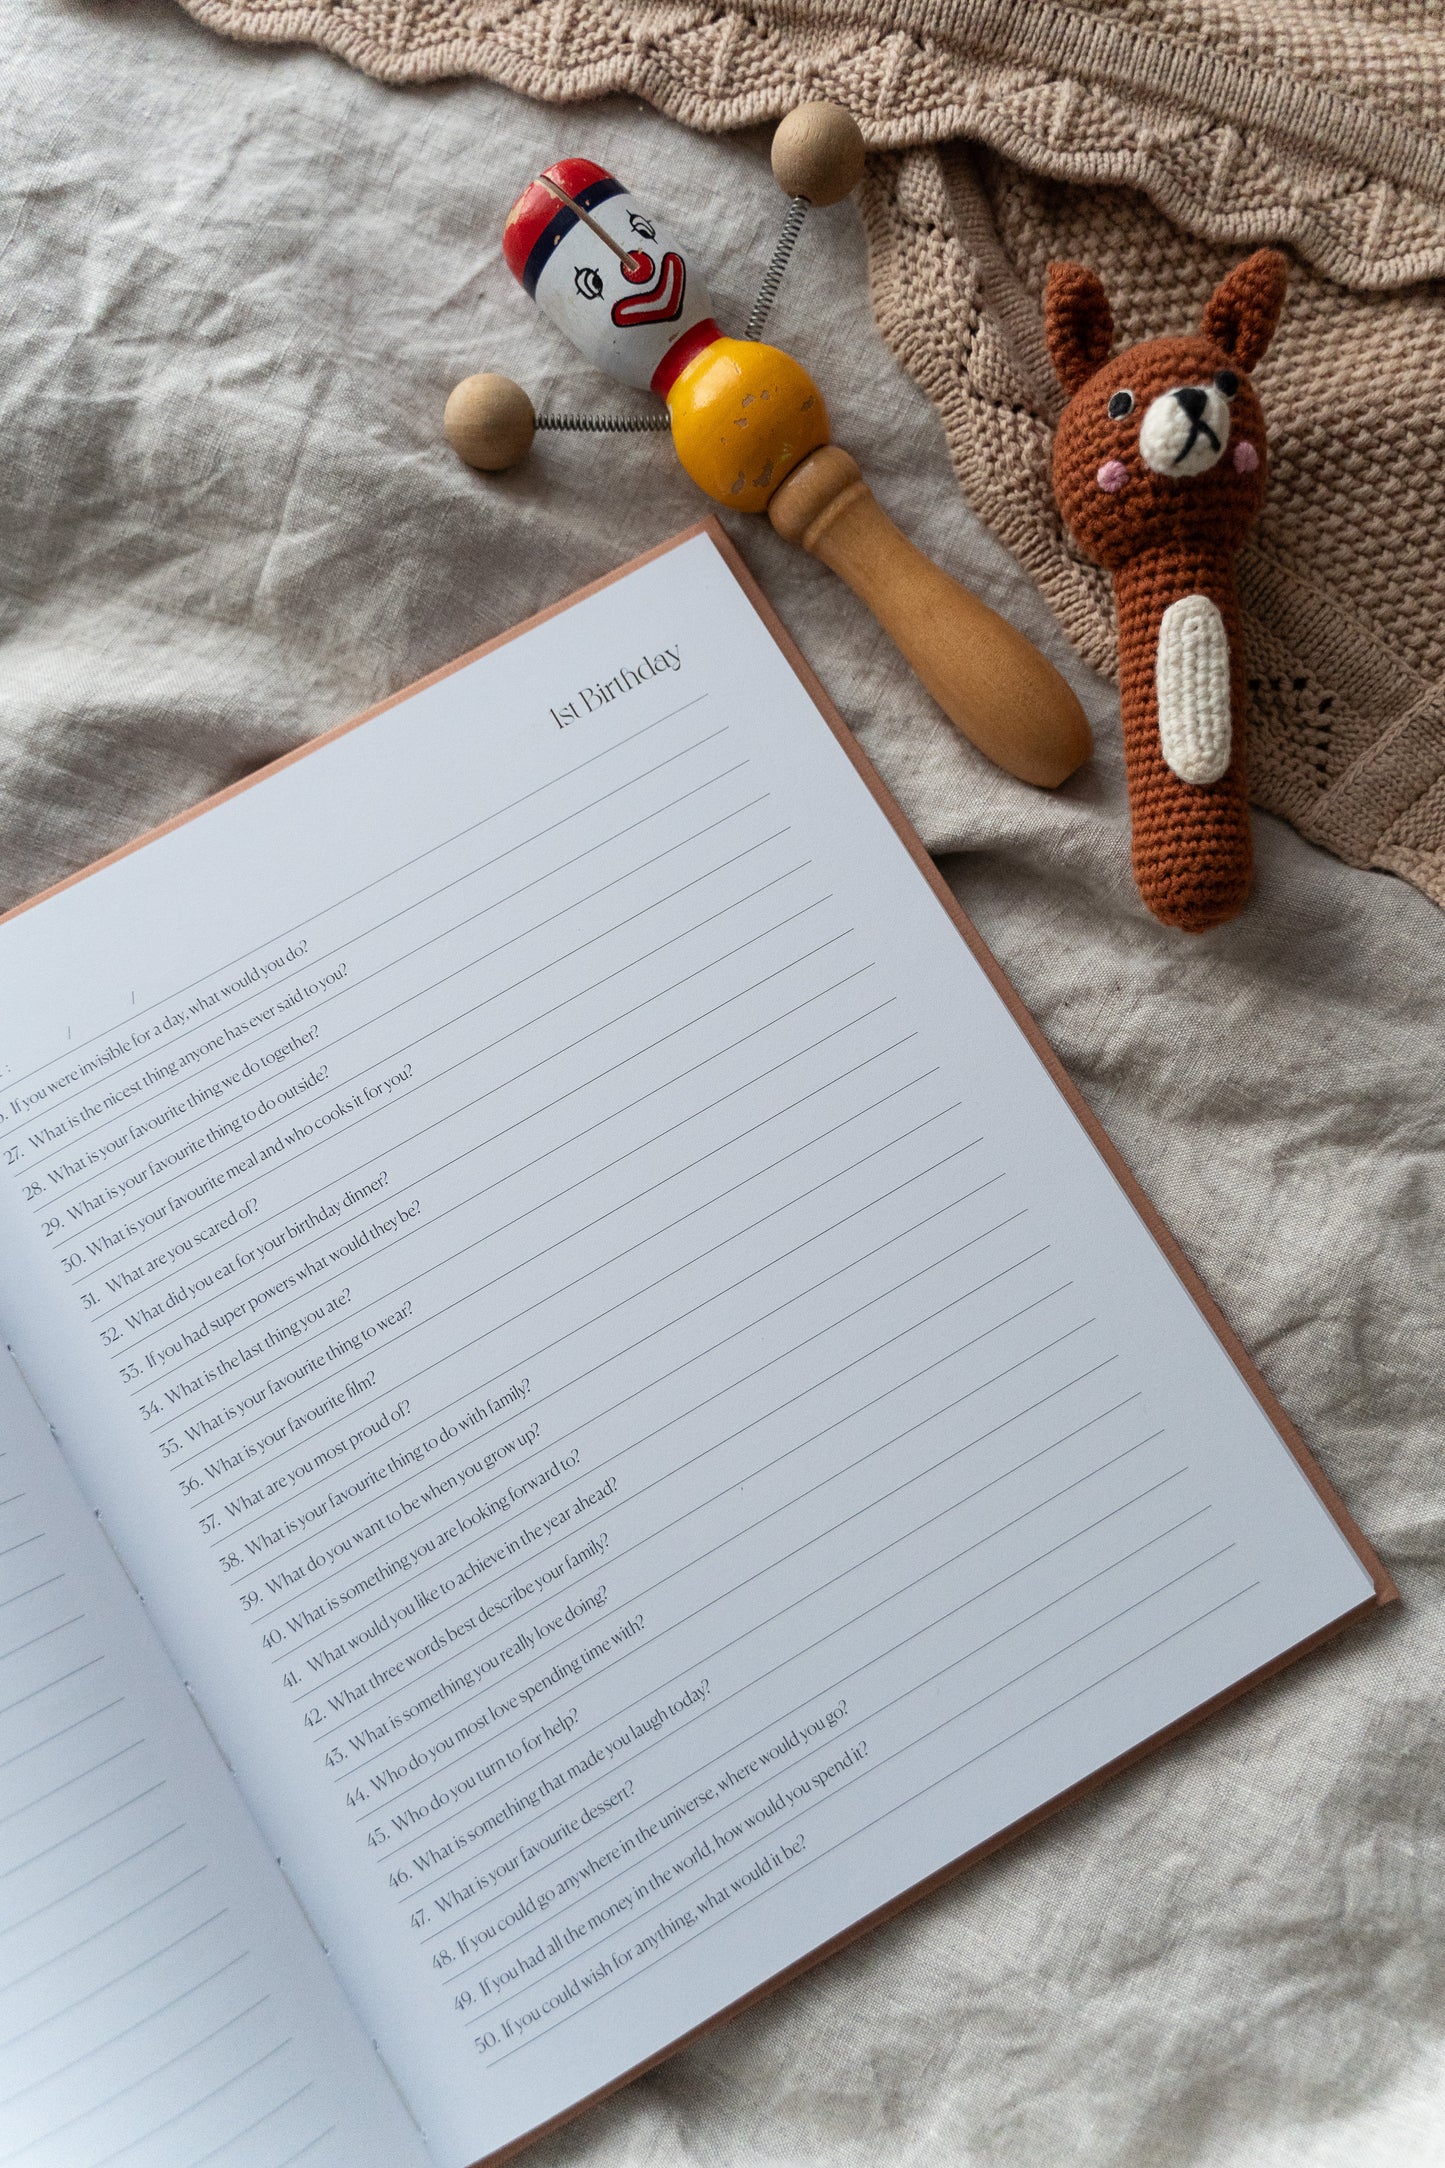 1st Birthday
/ /
If you were invisible for a day, what would you do?
27. What is the nicest thing anyone has ever said to you?
28. What is your favourite thing we do together?
29. What is your favourite thing to do outside?
30. What is your favourite meal and who cooks it for you?
31. What are you scared of?
32. What did you eat for your birthday dinner?
33. If you had super powers what would they be?
34. What is the last thing you ate?
35. What is your favourite thing to wear?
36. What is your favourite film?
37. What are you most proud of?
38. What is your favourite thing to do with family?
39. What do you want to be when you grow up?
40. What is something you are looking forward to?
41. What would you like to achieve in the year ahead?
42. What three words best describe your family?
43. What is something you really love doing?
44. Who do you most love spending time with?
45. Who do you turn to for help?
46. What is something that made you laugh today?
47. What is your favourite dessert?
48. If you could go anywhere in the universe, where would you go?
49. If you had all the money in the world, how would you spend it?
50. If you could wish for anything, what would it be?